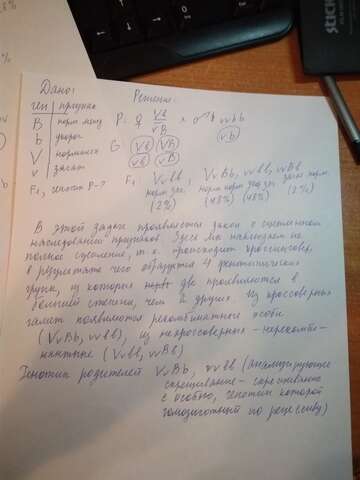 Дано:
ген признак
B норм. мышц
b
V нормальн.
v
F₁, генотип P-?
Решение:
P: ♀ Vb/vB × ♂ vvbb
G: Vb VB vb vB vb
F₁ Vvbb, VvBb, vvbb, vvBb
(2%) (48%) (48%) (2%)
В этой задаче проявляется закон о сцепленном
наследовании признаков. Здесь мы наблюдаем не-
полное сцепление, т.к. происходит кроссинговер,
в результате чего образуется 4 фенотипических
групп, из которых две проявляются в
большей степени, чем 2 других. Из кроссоверных
гамет появляются рекомбинатные особи
(VvBb, vvbb), из некроссоверных - нерекомби-
нантные (Vvbb, vvBb)
Генотип родителей VvBb, vvbb (анализирующее
скрещивание - скрещивание
с особью, генотип которой
гомозиготный по рецессиву)